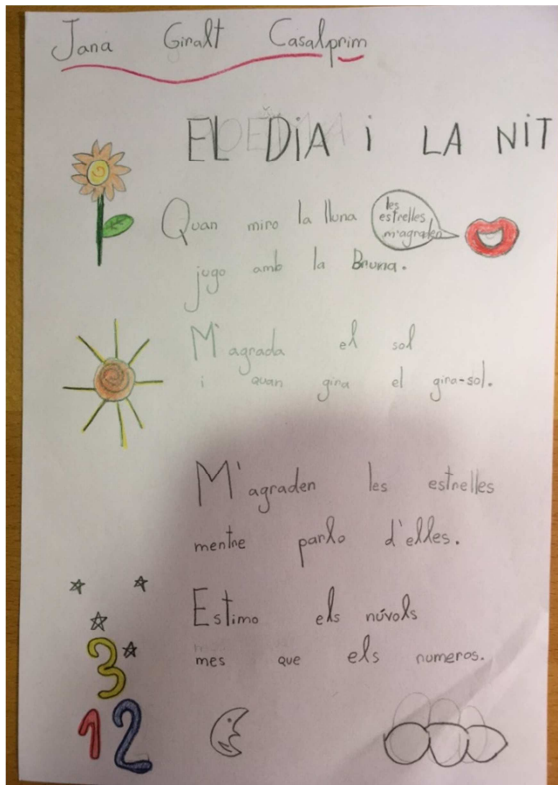 Jana Giralt Casalprim
EL DIA i LA NIT
Quan miro la lluna
les
estrelles
m'agraden
jugo amb la Bruna.
M'agrada el sol
i quan gira el gira-sol.
M'agraden les estrelles
mentre parlo d'elles.
Estimo els núvols
mes que els numeros.
3
12